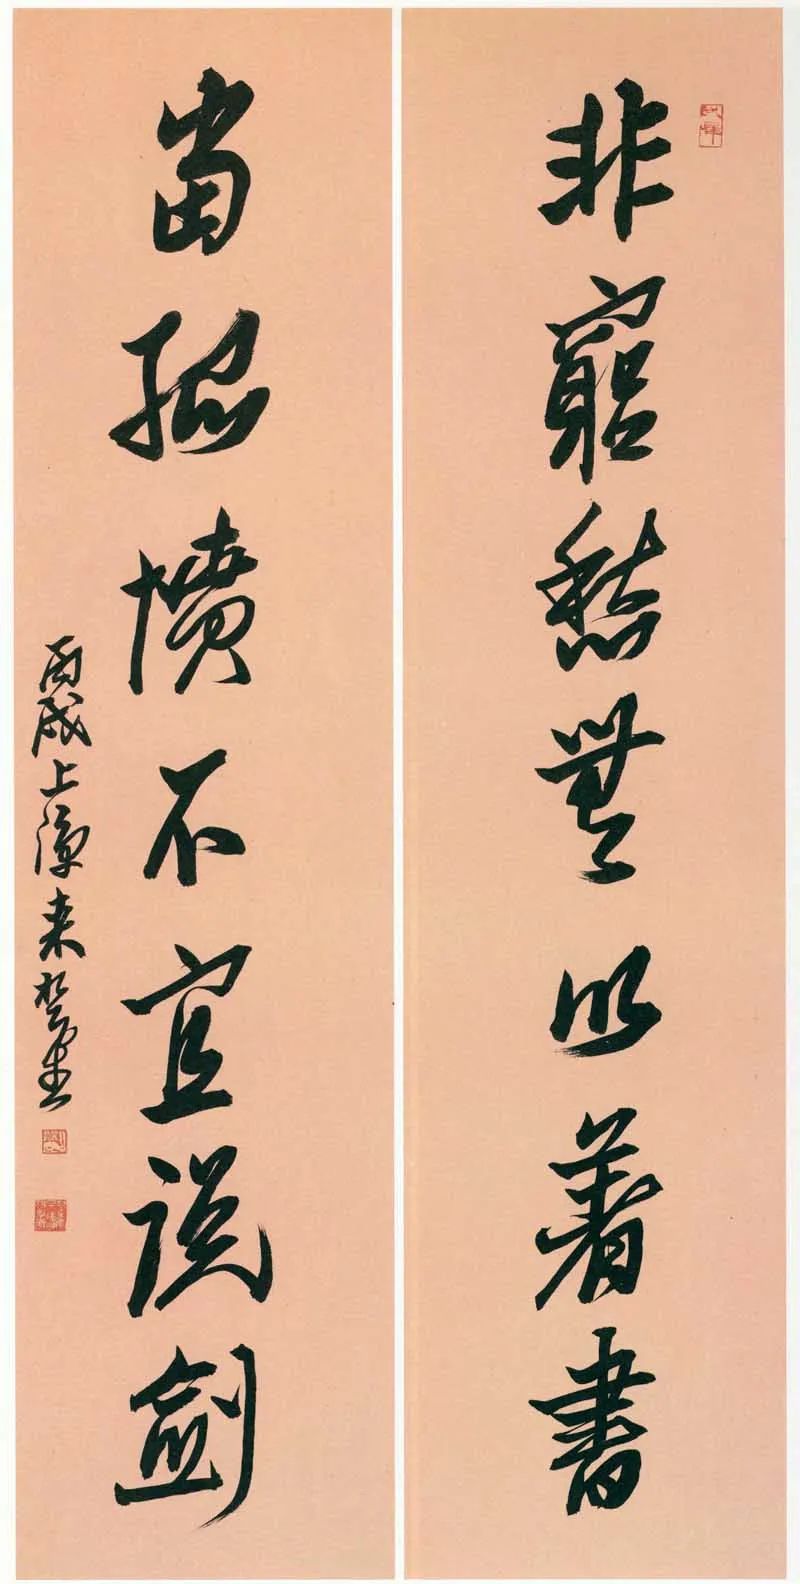 非窮愁無以著書
當孤憤不宜說劍
丙戌上來楚生